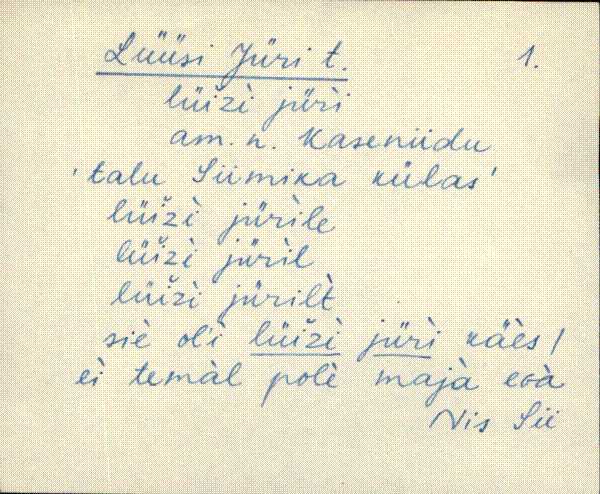 Lüüsi Jüri t. 1.
lüižì jüri
am. n. Kaseniidu
'talu Siimika külas'
lüižì jürìle
lüižì jürìl
lüižì jürìlt
siè oli lüižì jüri käès /
eì temàl polè majà eɷà
Nis Sii